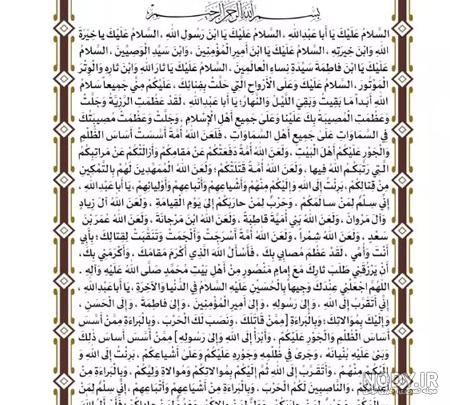 بِسْمِ اللهِ الرَّحْمنِ الرَّحيمِ
اَلسَّلامُ عَلَيْكَ يا اَبا عَبْدِاللهِ ، اَلسَّلامُ عَلَيْكَ يَا ابْنَ رَسُولِ اللهِ ، اَلسَّلامُ عَلَيْكَ يا خِيَرَةَ
اللهِ وَابْنَ خِيَرَتِهِ ، اَلسَّلامُ عَلَيْكَ يَا ابْنَ اَميرِ الْمُؤْمِنينَ ، وَابْنَ سَيِّدِ الْوَصِيّينَ ، اَلسَّلامُ
عَلَيْكَ يَا ابْنَ فاطِمَةَ سَيِّدَةِ نِساءِ الْعالَمينَ ، اَلسَّلامُ عَلَيْكَ يا ثارَ اللهِ وَابْنَ ثارِهِ وَالْوِتْرَ
الْمَوْتُورَ ، اَلسَّلامُ عَلَيْكَ وَعَلَى الْاَرْواحِ الَّتي حَلَّتْ بِفِنائِكَ ، عَلَيْكُمْ مِنّي جَميعاً سَلامُ
اللهِ اَبَداً ما بَقيتُ وَبَقِيَ اللَّيْلُ وَالنَّهارُ؛ يا اَبا عَبْدِاللهِ ، لَقَدْ عَظُمَتِ الرَّزِيَّةُ وَجَلَّتْ
وَعَظُمَتِ الْمُصيبَةُ بِكَ عَلَيْنا وَعَلى جَميعِ اَهْلِ الْاِسْلامِ ، وَجَلَّتْ وَعَظُمَتْ مُصيبَتُكَ
فِي السَّماواتِ عَلى جَميعِ اَهْلِ السَّماواتِ ، فَلَعَنَ اللهُ اُمَّةً اَسَّسَتْ اَساسَ الظُّلْمِ
وَالْجَوْرِ عَلَيْكُمْ اَهْلَ الْبَيْتِ ، وَلَعَنَ اللهُ اُمَّةً دَفَعَتْكُمْ عَنْ مَقامِكُمْ وَاَزالَتْكُمْ عَنْ مَراتِبِكُمُ
الَّتي رَتَّبَكُمُ اللهُ فيها ، وَلَعَنَ اللهُ اُمَّةً قَتَلَتْكُمْ؛ وَلَعَنَ اللهُ الْمُمَهِّدينَ لَهُمْ بِالتَّمْكينِ
مِنْ قِتالِكُمْ ، بَرِئْتُ اِلَى اللهِ وَاِلَيْكُمْ مِنْهُمْ وَاَشْياعِهِمْ وَاَتْباعِهِمْ وَاَوْلِيائِهِمْ، يا اَبا عَبْدِاللهِ ،
اِنّي سِلْمٌ لِمَنْ سالَمَكُمْ ، وَحَرْبٌ لِمَنْ حارَبَكُمْ اِلى يَوْمِ الْقِيامَةِ ، وَلَعَنَ اللهُ آلَ زِيادٍ
وَآلَ مَرْوانَ ، وَلَعَنَ اللهُ بَني اُمَيَّةَ قاطِبَةً ، وَلَعَنَ اللهُ ابْنَ مَرْجانَةَ ، وَلَعَنَ اللهُ عُمَرَ بْنَ
سَعْدٍ ، وَلَعَنَ اللهُ شِمْراً ، وَلَعَنَ اللهُ اُمَّةً اَسْرَجَتْ وَاَلْجَمَتْ وَتَنَقَّبَتْ لِقِتالِكَ؛ بِاَبي
اَنْتَ وَاُمّي ، لَقَدْ عَظُمَ مُصابي بِكَ ، فَاَسْأَلُ اللهَ الَّذي اَكْرَمَ مَقامَكَ ، وَاَكْرَمَني بِكَ ،
اَنْ يَرْزُقَني طَلَبَ ثارِكَ مَعَ اِمامٍ مَنْصُورٍ مِنْ اَهْلِ بَيْتِ مُحَمَّدٍ صَلَّى اللهُ عَلَيْهِ وَآلِهِ .
اَللّهُمَّ اجْعَلْني عِنْدَكَ وَجيهاً بِالْحُسَيْنِ عَلَيْهِ السَّلامُ فِي الدُّنْيا وَالْآخِرَةِ، يا اَبا عَبْدِاللهِ ،
اِنّي اَتَقَرَّبُ اِلَى اللهِ ، وَاِلى رَسُولِهِ ، وَاِلى اَميرِ الْمُؤْمِنينَ ، وَاِلى فاطِمَةَ ، وَاِلَى الْحَسَنِ ،
وَاِلَيْكَ بِمُوالاتِكَ ، وَبِالْبَراءَةِ [مِمَّنْ قاتَلَكَ ، وَنَصَبَ لَكَ الْحَرْبَ ، وَبِالْبَراءَةِ مِمَّنْ اَسَّسَ
اَساسَ الظُّلْمِ وَالْجَوْرِ عَلَيْكُمْ ، وَاَبْرَأُ اِلَى اللهِ وَاِلى رَسُولِهِ] مِمَّنْ اَسَّسَ اَساسَ ذلِكَ
وَبَنى عَلَيْهِ بُنْيانَهُ ، وَجَرى في ظُلْمِهِ وَجَوْرِهِ عَلَيْكُمْ وَعَلى اَشْياعِكُمْ ، بَرِئْتُ اِلَى اللهِ
وَاِلَيْكُمْ مِنْهُمْ ، وَاَتَقَرَّبُ اِلَى اللهِ ثُمَّ اِلَيْكُمْ بِمُوالاتِكُمْ وَمُوالاةِ وَلِيِّكُمْ ، وَبِالْبَراءَةِ مِنْ
اَعْدائِكُمْ ، وَالنّاصِبينَ لَكُمُ الْحَرْبَ ، وَبِالْبَراءَةِ مِنْ اَشْياعِهِمْ وَاَتْباعِهِمْ ، اِنّي سِلْمٌ لِمَنْ